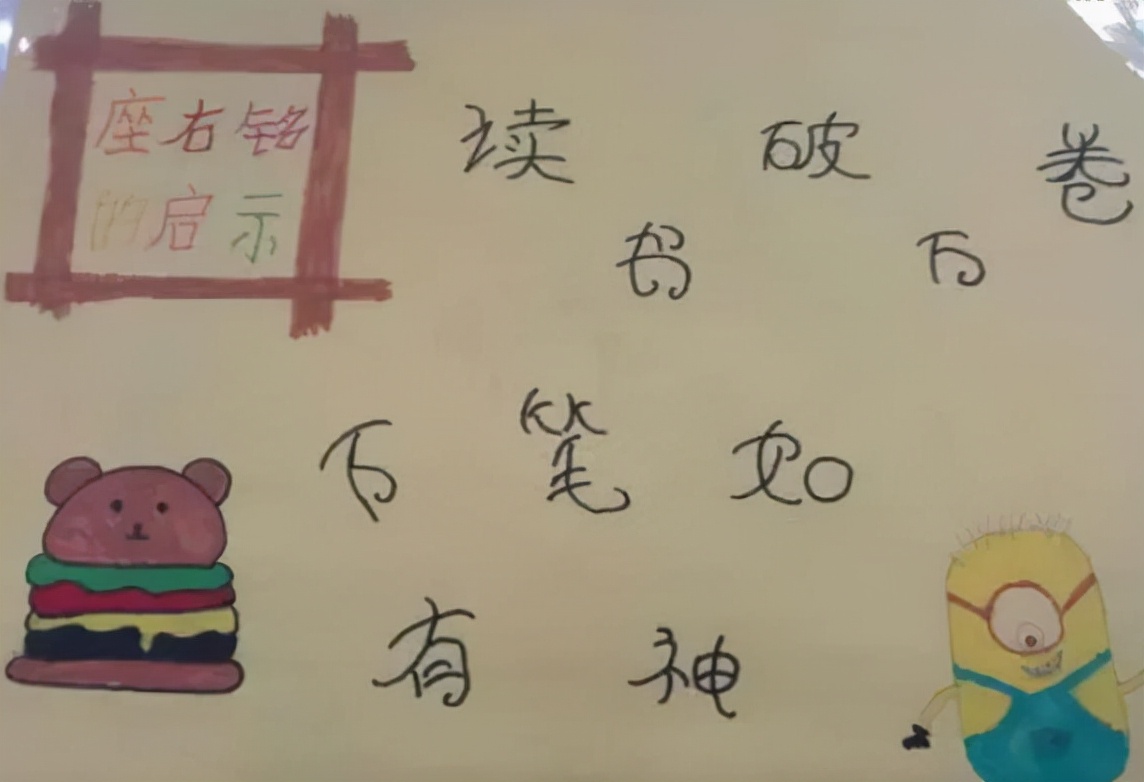 座右铭
的启示
读书破万卷
下笔如
有神